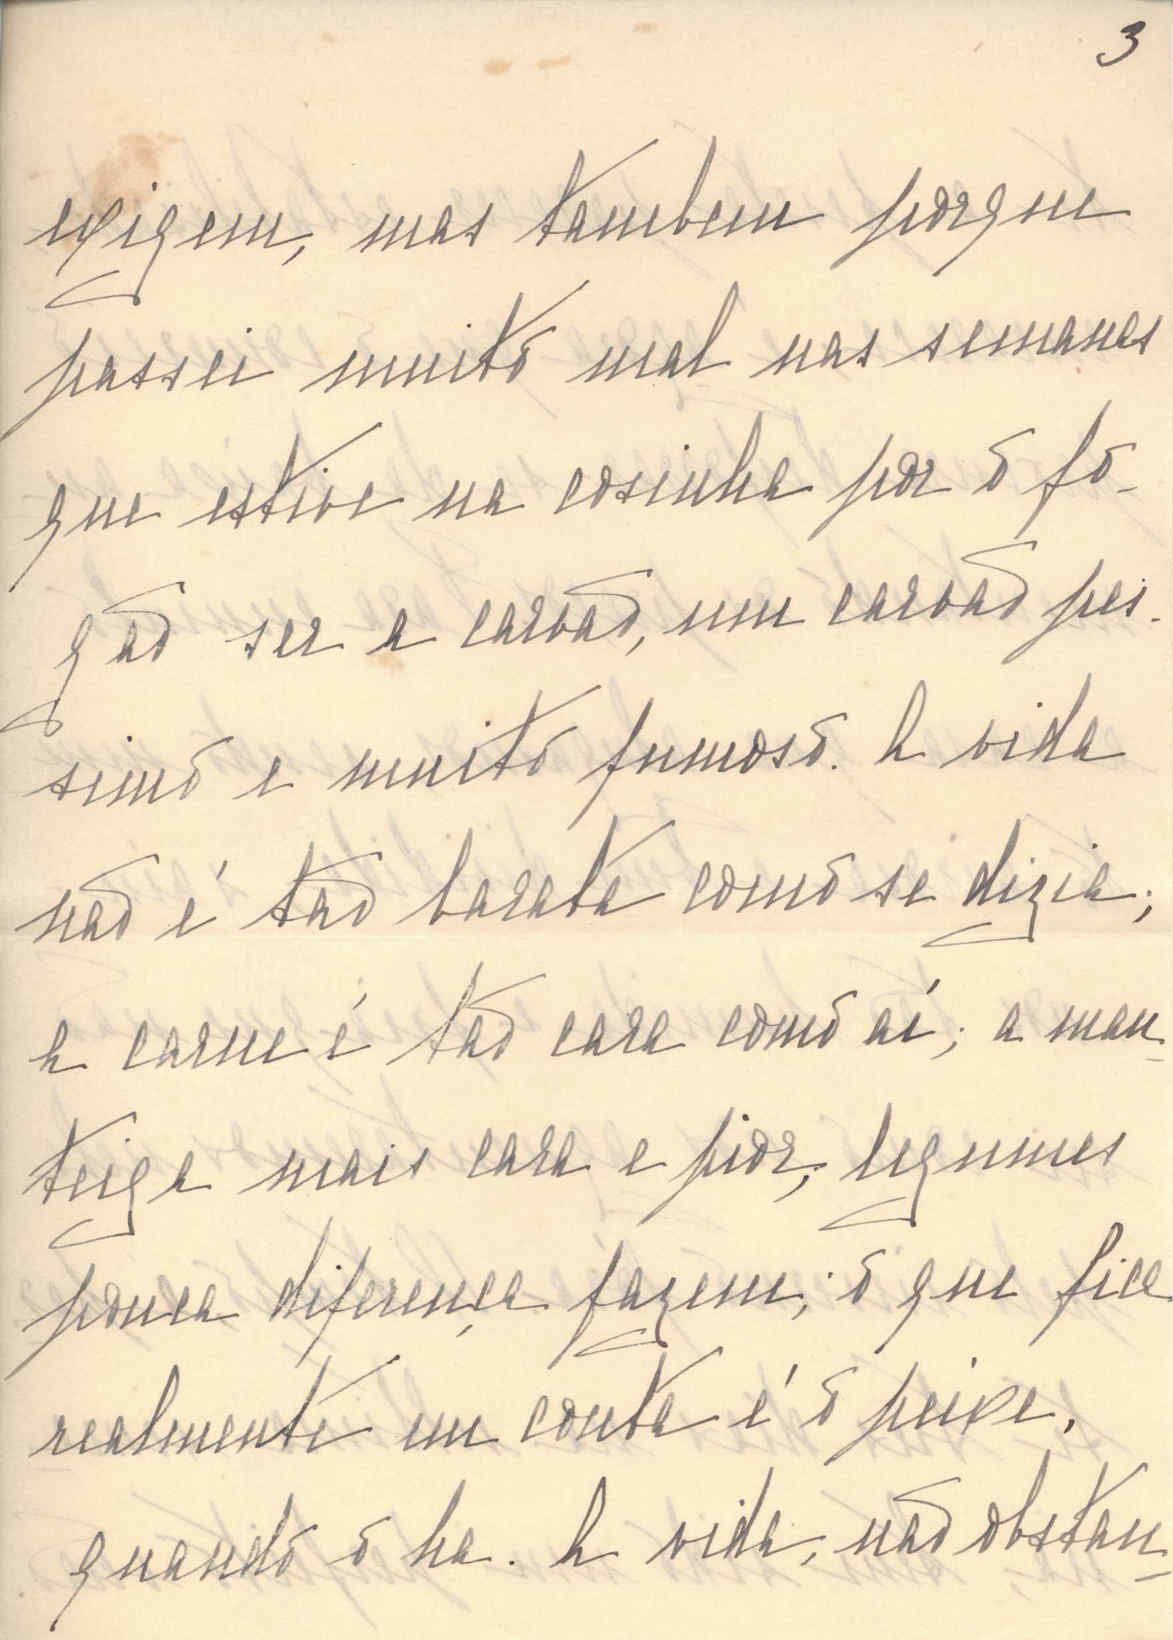 3
exigem, mas tambem porque
passei muito mal nas semanas
que estive na cosinha por o fo-
gão ser a carvão, um carvão pes-
simo e muito fumoso. A vida
não é tão barata como se dizia;
a carne é tão cara como aí; a man-
teiga mais cara e pior; legumes
pouca diferença fazem; o que fica
realmente em conta é o peixe,
quando o ha. A vida, não obstan-